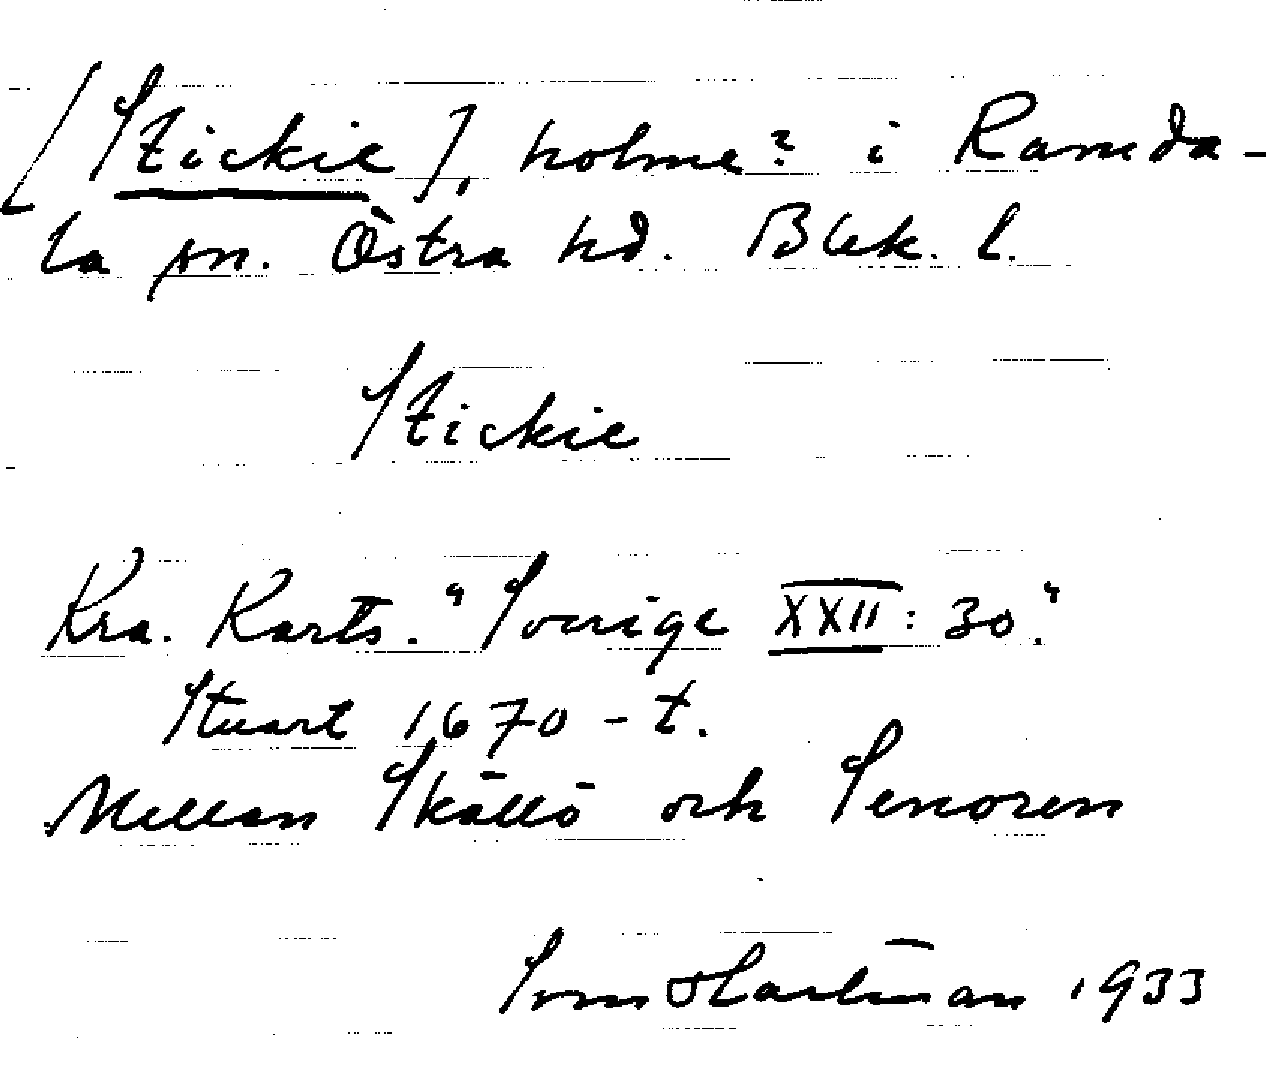 [Stickie], holme? i Ramda-
la sn. Östra hd. Blek. l.
Stickie
Kra. Karts. "Sverige XXII: 30."
Stuart 1670-t.
Mellan Skällö och Senoren
Sven Hartman 1933